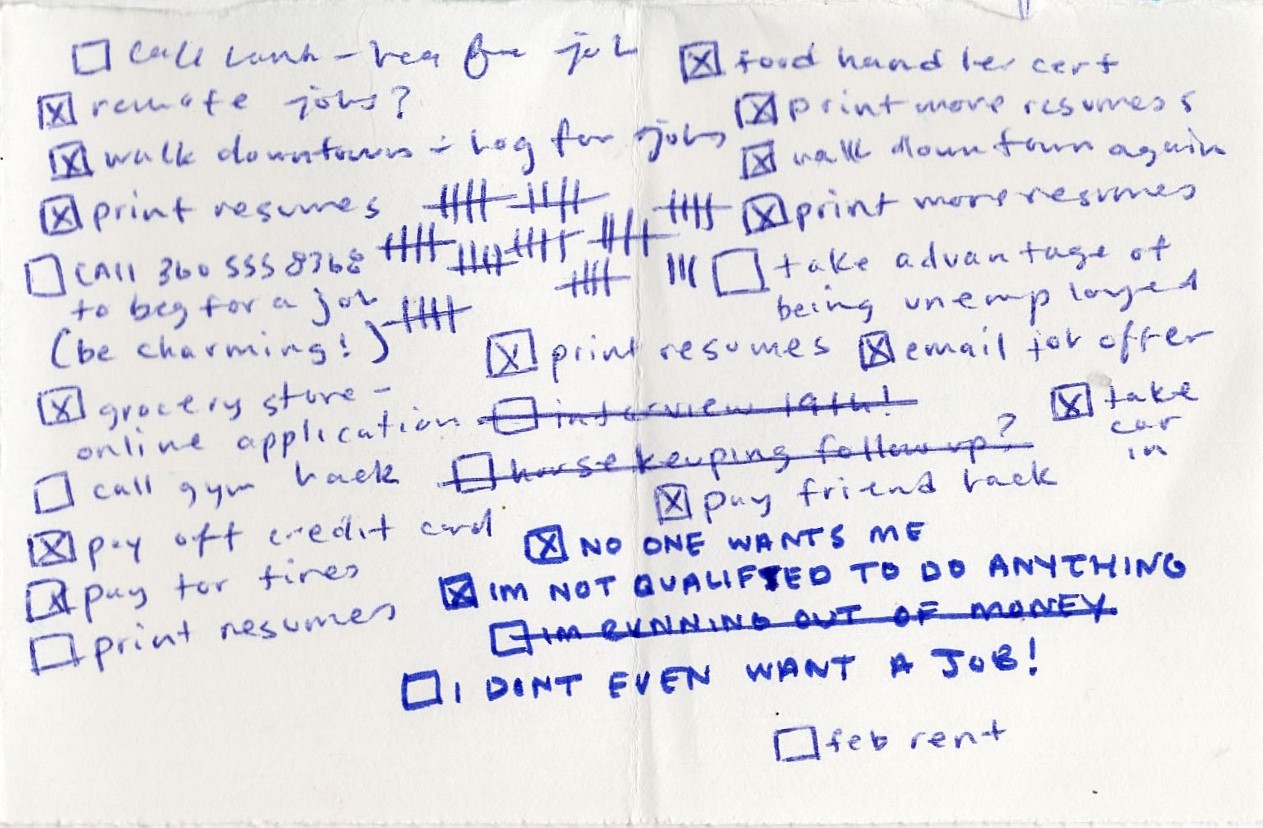 ☐ call bank - beg for job
☒ remote jobs?
☒ walk downtown - beg for jobs
☒ print resumes
☐ CAll 360 555 8368
to beg for a job
(be charming!)
☒ grocery store -
online application
☐ call gym back
☒ pay off credit card
☒ pay for tires
☐ print resumes
☒ food handler cert
☒ print more resumes
☒ walk downtown again
☒ print more resumes
☐ take advantage of
being unemployed
☒ print resumes
☒ email job offer
☐ interview 19th!
☒ take
car
in
☐ housekeeping follow up?
☒ pay friend back
☒ NO ONE WANTS ME
☒ IM NOT QUALIFIED TO DO ANYTHING
☐ IM RUNNING OUT OF MONEY
☐ I DONT EVEN WANT A JOB!
☐ feb rent